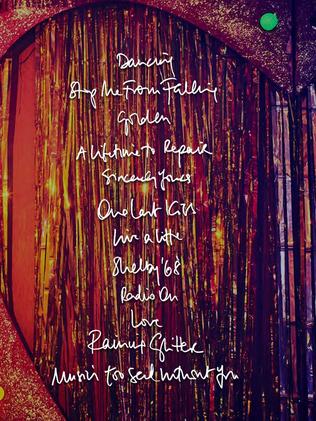 Dancing
Stop Me From Falling
Golden
A Lifetime to Repair
Sincerely Yours
One Last Kiss
Live a Little
Shelby '68
Radio On
Love
Raining Glitter
Music's too sad without you